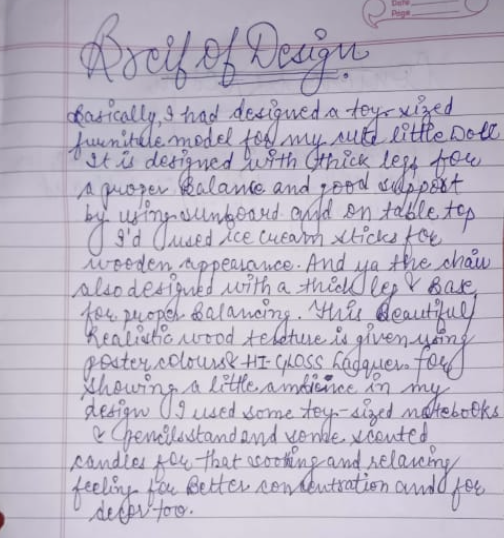 Date
Page
Breif of Design
Basically, I had designed a toy-sized
furniture model for my cute little Doll
It is designed with thick legs for
a proper Balance and good support
by using sunboard and on table top
I'd used ice cream sticks for
wooden appearance. And ya the chair
also designed with a thick leg & Base
for proper Balancing. This Beautiful
Realistic wood texture is given using
poster colours & HI-GLOSS Lacquer. For
showing a little ambience in my
design I used some toy-sized notebooks
& pencil stand and some scented
candles for that soothing and relaxing
feeling for Better concentration and for
decor too.